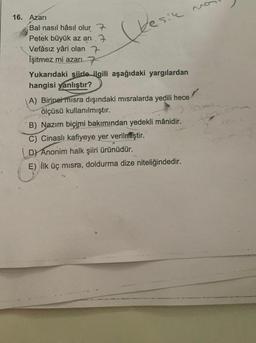 Kesik
16. Azarı
Bal nasıl hâsıl olur 7
Petek büyük az arı 7
Vefâsız yâri olan 7
İşitmez mi azarı 7
Yukarıdaki şiirle ilgili aşağıdaki yargılardan
hangisi yanlıştır?
A) Birinci mısra dışındaki mısralarda yedili hece
ölçüsü kullanılmıştır.
B) Nazım biçimi bakımından yedekli mânidir.
C) Cinaslı kafiyeye yer verilmiştir.
D) Anonim halk şiiri ürünüdür.
E) İlk üç mısra, doldurma dize niteliğindedir.